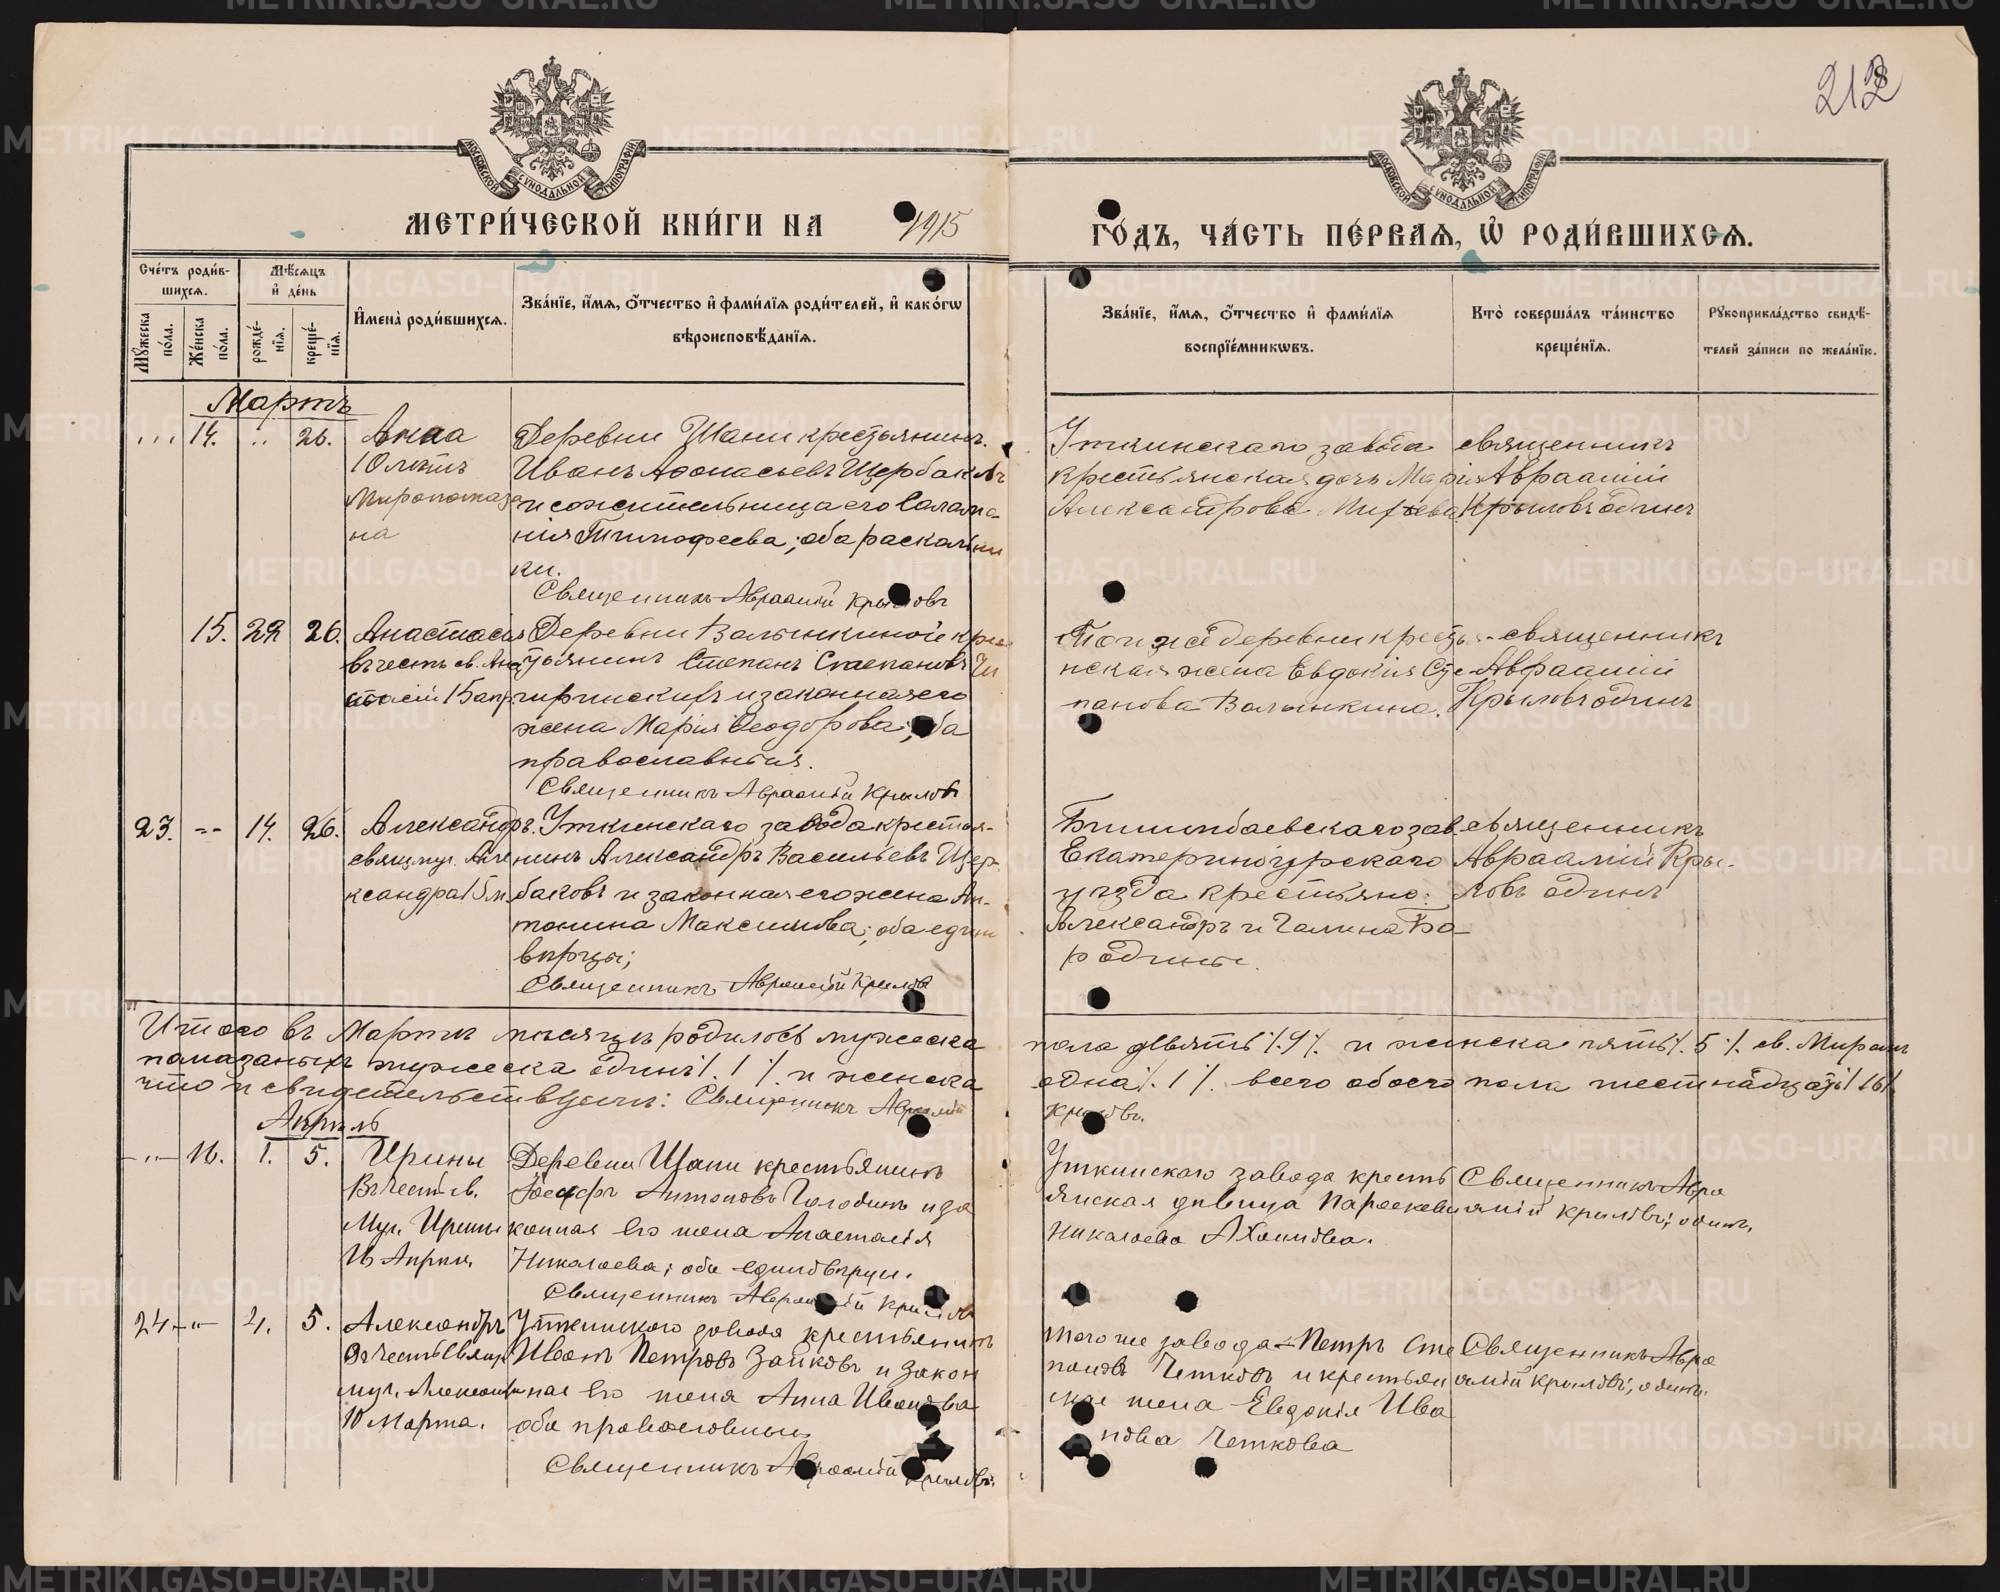 212
МОСКОВСКОЙ СѴНОДАЛЬНОЙ ТИПОГРАФІИ
МОСКОВСКОЙ СѴНОДАЛЬНОЙ ТИПОГРАФІИ
МЕТРИ́ЧЕСКОЙ КНИ́ГИ НА 1915
ГО́ДЪ, ЧА́СТЬ ПЕ́РВАѦ, Ѡ҆ РОДИ́ВШИХСѦ.
Сче́тъ роди́в-
шихсѧ.
Мѣ́сѧцъ
и҆ де́нь
Мꙋ́жеска
по́ла.
Же́нска
по́ла.
рожде́-
нїѧ.
креще́-
нїѧ.
И҆мена̀ роди́вшихсѧ.
Зва́нїе, и҆́мѧ, ѻ҆́тчество и҆ фами́лїѧ роди́телей, и҆ како́гѡ
вѣроисповѣ́данїѧ.
Зва́нїе, и҆́мѧ, ѻ҆́тчество и҆ фами́лїѧ
воспрїе́мникѡвъ.
Кто̀ соверша́лъ та́инство
креще́нїѧ.
Рꙋкоприкла́дство свидѣ́-
телей за́писи по жела́нїю.
Мартъ
14. 26. Анна
10 лѣтъ
Миропомаза
на
Деревни Шани крестьянинъ
Иванъ Аѳонасьевъ Щербаковъ
и сожительница его Салома-
нія Тимофеева; оба раскольни
ки.
Священникъ Авраамій Крыловъ
Уткинскаго завода
крестьянская дочь Марія
Александрова
священникъ
Авраамій
Крыловъ один
15. 22 26. Анастасія
въ честь св. Ана
стасіи 15 апр.
Деревни Волынкиной кре
стьянинъ Степанъ Степановъ Чи
гиринскихъ и законная его
жена Марія Ѳеодорова; оба
православныя.
Священникъ Авраамій Крыловъ
Той же деревни кресть-
нская жена Евдокія Сте
панова Волынкина.
священникъ
Авраамій
Крыловъ один
23. -- 14. 26. Александръ.
свящмуч. Але
ксандра 15 м.
Уткинскаго завода крестья-
нинъ Александръ Васильевъ Щер-
баковъ и законная его жена Ан-
тонина Максимова; оба едино
вѣрцы;
Священникъ Авраамій Крыловъ
Билимбаевскаго зав.
Екатеринбургскаго
уѣзда крестьяне:
Александръ и Галина Бо
родины.
священникъ
Авраамій Кры-
ловъ один
Итого въ Мартѣ мѣсяцѣ родилось мужеска пола девять /.9/. и женска пять /.5/. св. Миром
помазаныхъ мужеска одинъ /.1/. и женска одна /.1/. всего обоего пола шестнадцать /.16/.
что и свидѣтельствуемъ: Священникъ Авраамій Крыловъ.
Апрѣль
-"- 16. 1. 5. Ирины
Въ честь св.
Муч. Ирины
16 Апрѣля.
Деревни Шани крестьянинъ
Іосифъ Антоновъ Голодинъ и за
конная его жена Анастасія
Николаева; оба единовѣрцы.
Священникъ Авраамій Крыловъ
Уткинскаго завода кресть
янская дѣвица Параскева
Николаева
Священникъ Авра
амій Крыловъ; одинъ.
24 -"- 4. 5. Александръ
Въ честь Свящ
муч. Александра
10 Марта.
Уткинскаго завода крестьянинъ
Иванъ Петровъ Зайковъ и закон
ная его жена Анна Иванова
оба православные
Священникъ Авраамій Крыловъ.
Того же завода Петръ Сте
пановъ Четковъ и крестьян
ская жена Евдокія Ива
нова Четкова
Священникъ Авра
амій Крыловъ; одинъ.
METRIKI.GASO-URAL.RU